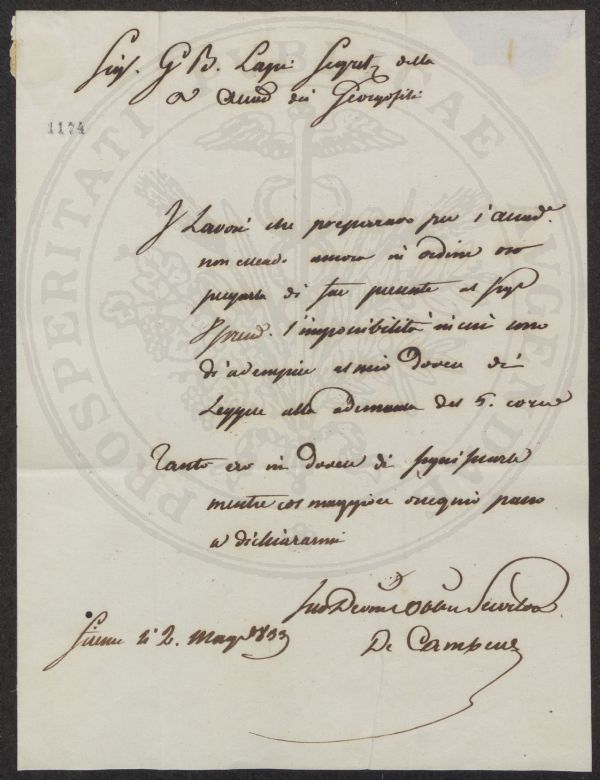 Sig.r G B. Lapi Segret. della
Accad dei Georgofili
1174
I Lavori che preparavo per l'Accad.a
non essendo ancora in ordine oso
pregarla di far presente al Sig.r
Presid. l'impossibilità in cui sono
di adempire al mio dovere di
Leggere alla adunanza del 5. core
Tanto ero in dovere di significarle
mentre col maggiore ossequio passo
a dichiararmi
Suo Devmo Obbmo Servitore
Firenze li 2. Magg 1833
De Cambray
PROSPERITATI PUBLICAE AUGENDAE